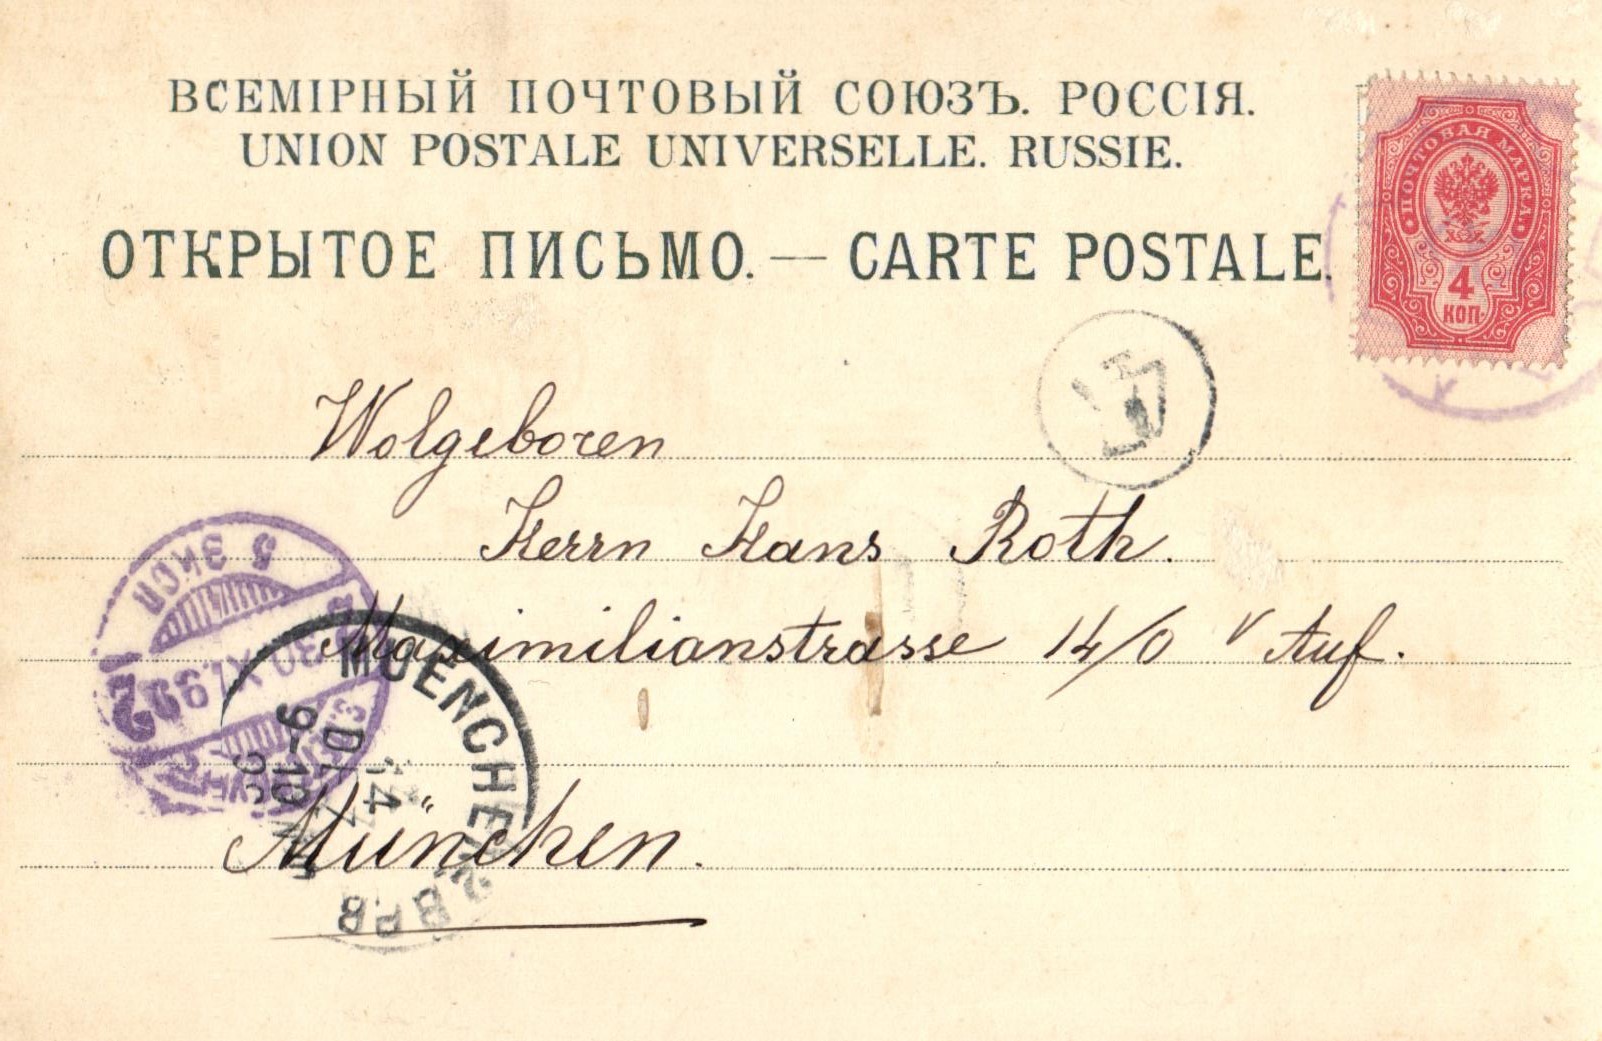 ВСЕМІРНЫЙ ПОЧТОВЫЙ СОЮЗЪ. РОССІЯ.
UNION POSTALE UNIVERSELLE. RUSSIE.
ОТКРЫТОЕ ПИСЬМО. — CARTE POSTALE.
ПОЧТОВАЯ МАРКА
4
КОП.
Wolgeboren
Herrn Hans Roth.
Maximilianstrasse 14/0 v Auf.
München.
5 ЭКСП
2
MUENCHEN 2 B.P.B
14
9-10